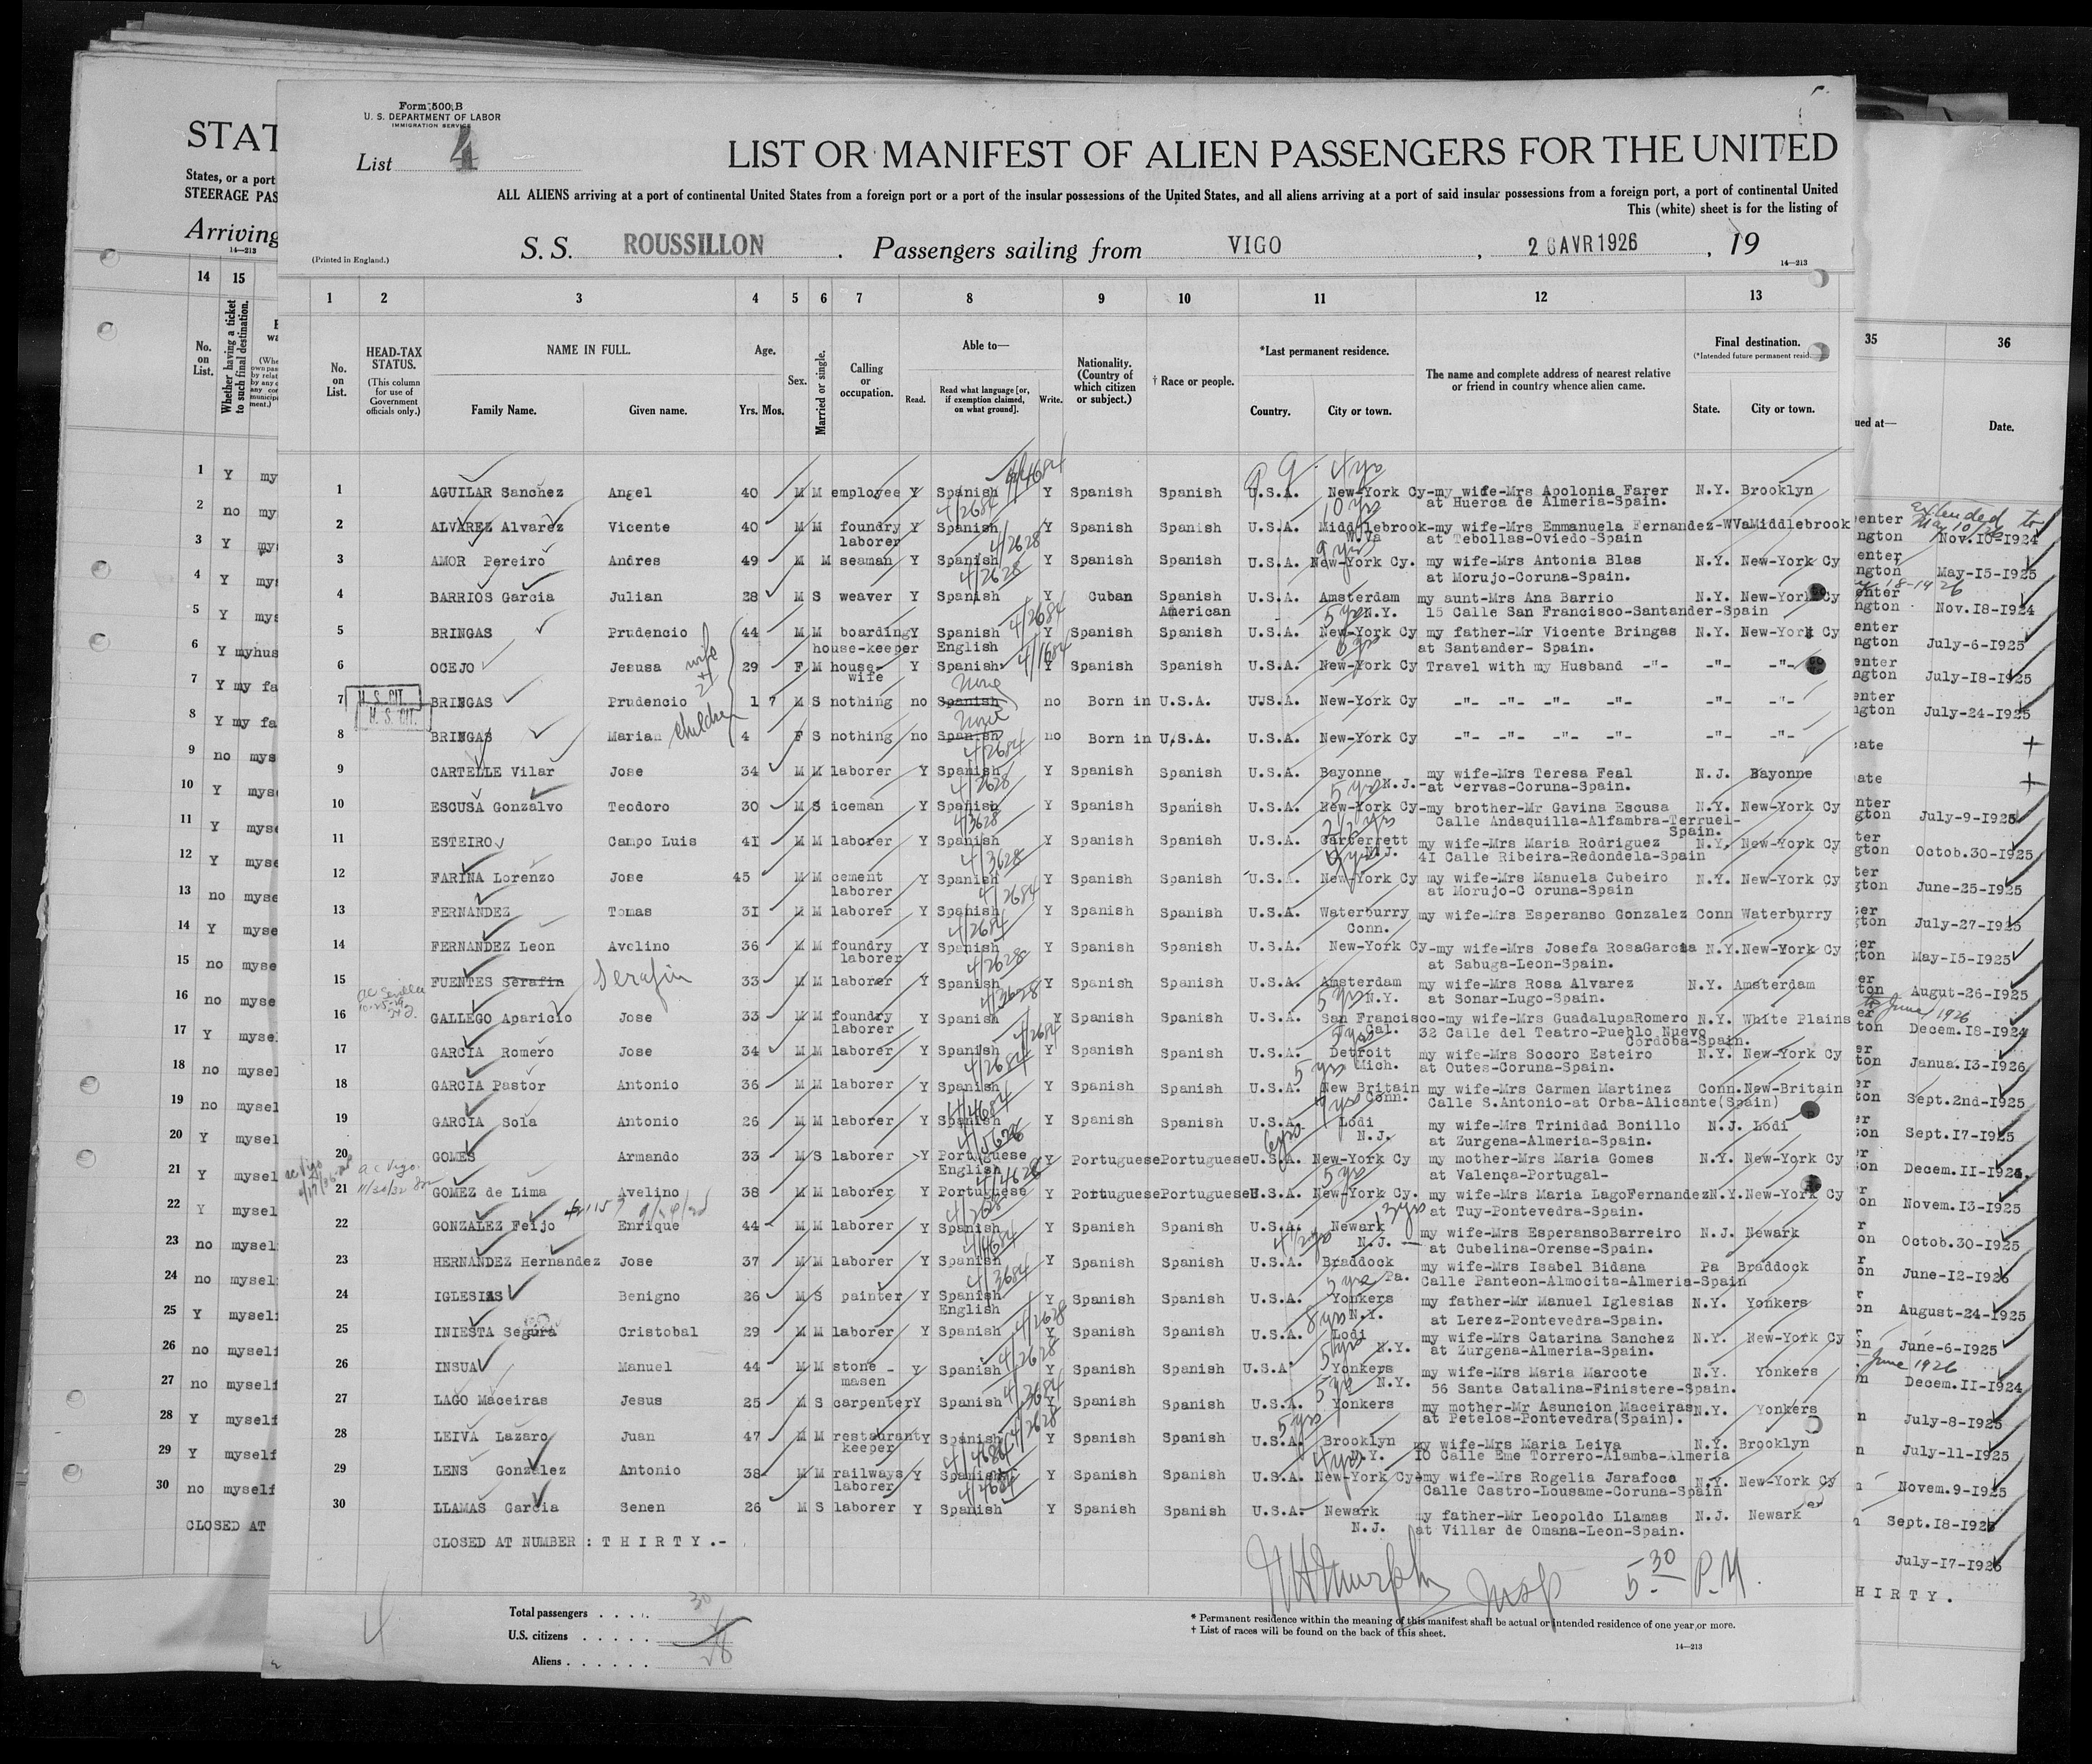 Form 500 B
U. S. DEPARTMENT OF LABOR
IMMIGRATION SERVICE
List 4
LIST OR MANIFEST OF ALIEN PASSENGERS FOR THE UNITED
ALL ALIENS arriving at a port of continental United States from a foreign port or a port of the insular possessions of the United States, and all aliens arriving at a port of said insular possessions from a foreign port, a port of continental United
This (white) sheet is for the listing of
(Printed in England.)
S. S. ROUSSILLON . Passengers sailing from VIGO , 26 AVR 1926 , 19
14—213
1 2 3 4 5 6 7 8 9 10 11 12 13
No. on List.
HEAD-TAX STATUS.
(This column for use of Government officials only.)
NAME IN FULL.
Family Name. Given name.
Age.
Yrs. Mos.
Sex.
Married or single.
Calling or occupation.
Able to—
Read. Read what language [or, if exemption claimed, on what ground]. Write.
Nationality. (Country of which citizen or subject.)
† Race or people.
*Last permanent residence.
Country. City or town.
The name and complete address of nearest relative or friend in country whence alien came.
Final destination.
(*Intended future permanent resid.
State. City or town.
1 AGUILAR Sanchez Angel 40 M M employee Y Spanish Y Spanish Spanish U.S.A. New-York Cy-my wife-Mrs Apolonia Farer N.Y. Brooklyn
at Huerca de Almeria-Spain.
2 ALVAREZ Alvarez Vicente 40 M M foundry Y Spanish Y Spanish Spanish U.S.A. Middlebrook-my wife-Mrs Emmanuela Fernandez-WVaMiddlebrook
laborer W.Va at Tebollas-Oviedo-Spain
3 AMOR Pereiro Andres 49 M M seaman Y Spanish Y Spanish Spanish U.S.A. New-York Cy. my wife-Mrs Antonia Blas N.Y. New-York Cy
at Morujo-Coruna-Spain.
4 BARRIOS Garcia Julian 28 M S weaver Y Spanish Y Cuban Spanish U.S.A. Amsterdam my aunt-Mrs Ana Barrio N.Y. New-York Cy
American N.Y. 15 Calle San Francisco-Santander-Spain
5 BRINGAS Prudencio 44 M M boarding Y Spanish Y Spanish Spanish U.S.A. New-York Cy my father-Mr Vicente Bringas N.Y. New-York Cy
house-keeper English at Santander- Spain.
6 OCEJO Jesusa wife 29 F M house- Y Spanish Y Spanish Spanish U.S.A. New-York Cy Travel with my Husband -"- -"- -"-
wife
7 U. S. CIT. BRINGAS Prudencio 1 7 M S nothing no Spanish None no Born in U.S.A. UUS.A. New-York Cy -"- -"- -"- -"- -"- -"-
U. S. CIT.
8 BRINGAS Marian children 4 F S nothing no Spanish None no Born in U.S.A. U.S.A. New-York Cy -"- -"- -"- -"- -"- -"-
9 CARTELLE Vilar Jose 34 M M laborer Y Spanish Y Spanish Spanish U.S.A. Bayonne my wife-Mrs Teresa Feal N.J. Bayonne
N.J.-at Cervas-Coruna-Spain.
10 ESCUSA Gonzalvo Teodoro 30 M S iceman Y Spanish Y Spanish Spanish U.S.A. New-York Cy-my brother-Mr Gavina Escusa N.Y. New-York Cy
Calle Andaquilla-Alfambra-Terruel-
Spain.
11 ESTEIRO Campo Luis 41 M M laborer Y Spanish Y Spanish Spanish U.S.A. Garterrett my wife-Mrs Maria Rodriguez N.Y. New-York Cy
N.J. 41 Calle Ribeira-Redondela-Spain
12 FARINA Lorenzo Jose 45 M M cement Y Spanish Y Spanish Spanish U.S.A. New-York Cy my wife-Mrs Manuela Cubeiro N.Y. New-York Cy
laborer at Morujo-C oruna-Spain
13 FERNANDEZ Tomas 31 M M laborer Y Spanish Y Spanish Spanish U.S.A. Waterburry my wife-Mrs Esperanso Gonzalez Conn Waterburry
Conn.
14 FERNANDEZ Leon Avelino 36 M M foundry Y Spanish Y Spanish Spanish U.S.A. New-York Cy-my wife-Mrs Josefa RosaGarcia N.Y.New-York Cy
laborer at Sabuga-Leon-Spain.
15 FUENTES Serafin Serafin 33 M M laborer Y Spanish Y Spanish Spanish U.S.A. Amsterdam my wife-Mrs Rosa Alvarez N.Y. Amsterdam
N.Y. at Sonar-Lugo-Spain.
16 GALLEGO Aparicio Jose 33 M M foundry Y Spanish Y Spanish Spanish U.S.A. San Francisco-my wife-Mrs GuadalupaRomero N.Y. White Plains
laborer Cal. 32 Calle del Teatro-Pueblo Nuevo
Cordoba-Spain.
17 GARCIA Romero Jose 34 M M laborer Y Spanish Y Spanish Spanish U.S.A. Detroit my wife-Mrs Socoro Esteiro N.Y. New-York Cy
Mich. at Outes-Coruna-Spain.
18 GARCIA Pastor Antonio 36 M M laborer Y Spanish Y Spanish Spanish U.S.A. New Britain my wife-Mrs Carmen Martinez Conn.New-Britain
Conn. Calle S.Antonio-at Orba-Alicante(Spain)
19 GARCIA Sola Antonio 26 M M laborer Y Spanish Y Spanish Spanish U.S.A. Lodi my wife-Mrs Trinidad Bonillo N.J. Lodi
N.J. at Zurgena-Almeria-Spain.
20 GOMES Armando 33 M S laborer Y Portuguese Y Portuguese Portuguese U.S.A. New-York Cy my mother-Mrs Maria Gomes N.Y. New-York Cy
English at Valença-Portugal-
21 GOMEZ de Lima Avelino 38 M M laborer Y Portuguese Y Portuguese Portuguese U.S.A. New-York Cy. my wife-Mrs Maria LagoFernandezN.Y.New-York Cy
at Tuy-Pontevedra-Spain.
22 GONZALEZ Feijo Enrique 44 M M laborer Y Spanish Y Spanish Spanish U.S.A. Newark my wife-Mrs EsperansoBarreiro N.J. Newark
N.J. at Cubelina-Orense-Spain.
23 HERNANDEZ Hernandez Jose 37 M M laborer Y Spanish Y Spanish Spanish U.S.A. Braddock my wife-Mrs Isabel Bidana Pa Braddock
Pa. Calle Panteon-Almocita-Almeria-Spain
24 IGLESIAS Benigno 26 M S painter Y Spanish Y Spanish Spanish U.S.A. Yonkers my father-Mr Manuel Iglesias N.Y. Yonkers
English N.Y. at Lerez-Pontevedra-Spain.
25 INIESTA Segura Cristobal 29 M M laborer Y Spanish Y Spanish Spanish U.S.A. Lodi my wife-Mrs Catarina Sanchez N.Y. New-York Cy
N.Y. at Zurgena-Almeria-Spain.
26 INSUA Manuel 44 M M stone - Y Spanish Y Spanish Spanish U.S.A Yonkers my wife-Mrs Maria Marcote N.Y. Yonkers
masen N.Y. 56 Santa Catalina-Finistere-Spain.
27 LAGO Maceiras Jesus 25 M S carpenter Y Spanish Y Spanish Spanish U.S.A. Yonkers my mother-Mr Asuncion Maceiras N.Y. Yonkers
at Petelos-Pontevedra(Spain).
28 LEIVA Lazaro Juan 47 M M restaurant Y Spanish Y Spanish Spanish U.S.A. Brooklyn my wife-Mrs Maria Leiva N.Y. Brooklyn
keeper N.Y. 10 Calle Eme Torrero-Alamba-Almeria
29 LENS Gonzalez Antonio 38 M M railways Y Spanish Y Spanish Spanish U.S.A. New-York Cy-my wife-Mrs Rogelia Jarafoca N.Y. New-York Cy
laborer Calle Castro-Lousame-Coruna-Spain
30 LLAMAS Garcia Senen 26 M S laborer Y Spanish Y Spanish Spanish U.S.A. Newark my father-Mr Leopoldo Llamas N.J. Newark
N.J. at Villar de Omana-Leon-Spain.
CLOSED AT NUMBER : T H I R T Y .-
5 30 P.M.
4
Total passengers . . . . 30
U.S. citizens . . . . .
Aliens . . . . . . 28
* Permanent residence within the meaning of this manifest shall be actual or intended residence of one year or more.
† List of races will be found on the back of this sheet.
14—213
STAT
States, or a port
STEERAGE PAS
Arriving
14—213
14 15
No. on List.
Whether having a ticket to such final destination.
1 Y my
2 no my
3 Y mys
4 Y mys
5 Y mys
6 Y myhus
7 Y my fa
8 Y my fa
9 no mys
10 Y myse
11 Y myse
12 Y myse
13 no myse
14 Y myse
15 no myse
16 no myse
17 Y mysel
18 no mysel
19 no mysel
20 Y mysel
21 Y mysel
22 Y mysel
23 no mysel
24 no mysel
25 Y myself
26 no myself
27 no myself
28 Y myself
29 Y myself
30 no myself
CLOSED AT
35 36
ued at— Date.
extended to
May 10/26
Nov.10-1924
May-15-1925
18-1926
Nov.18-1924
July-6-1925
July-18-1925
July-24-1925
July-9-1925
Octob.30-1925
June-25-1925
July-27-1925
May-15-1925
Augut-26-1925
to June 1926
Decem.18-1924
Janua.13-1926
Sept.2nd-1925
Sept.17-1925
Decem.11-1925
Novem.13-1925
Octob.30-1925
June-12-1925
August-24-1925
June-6-1925
June 1926
Decem.11-1924
July-8-1925
July-11-1925
Novem.9-1925
Sept.18-1925
July-17-1925
H I R T Y .